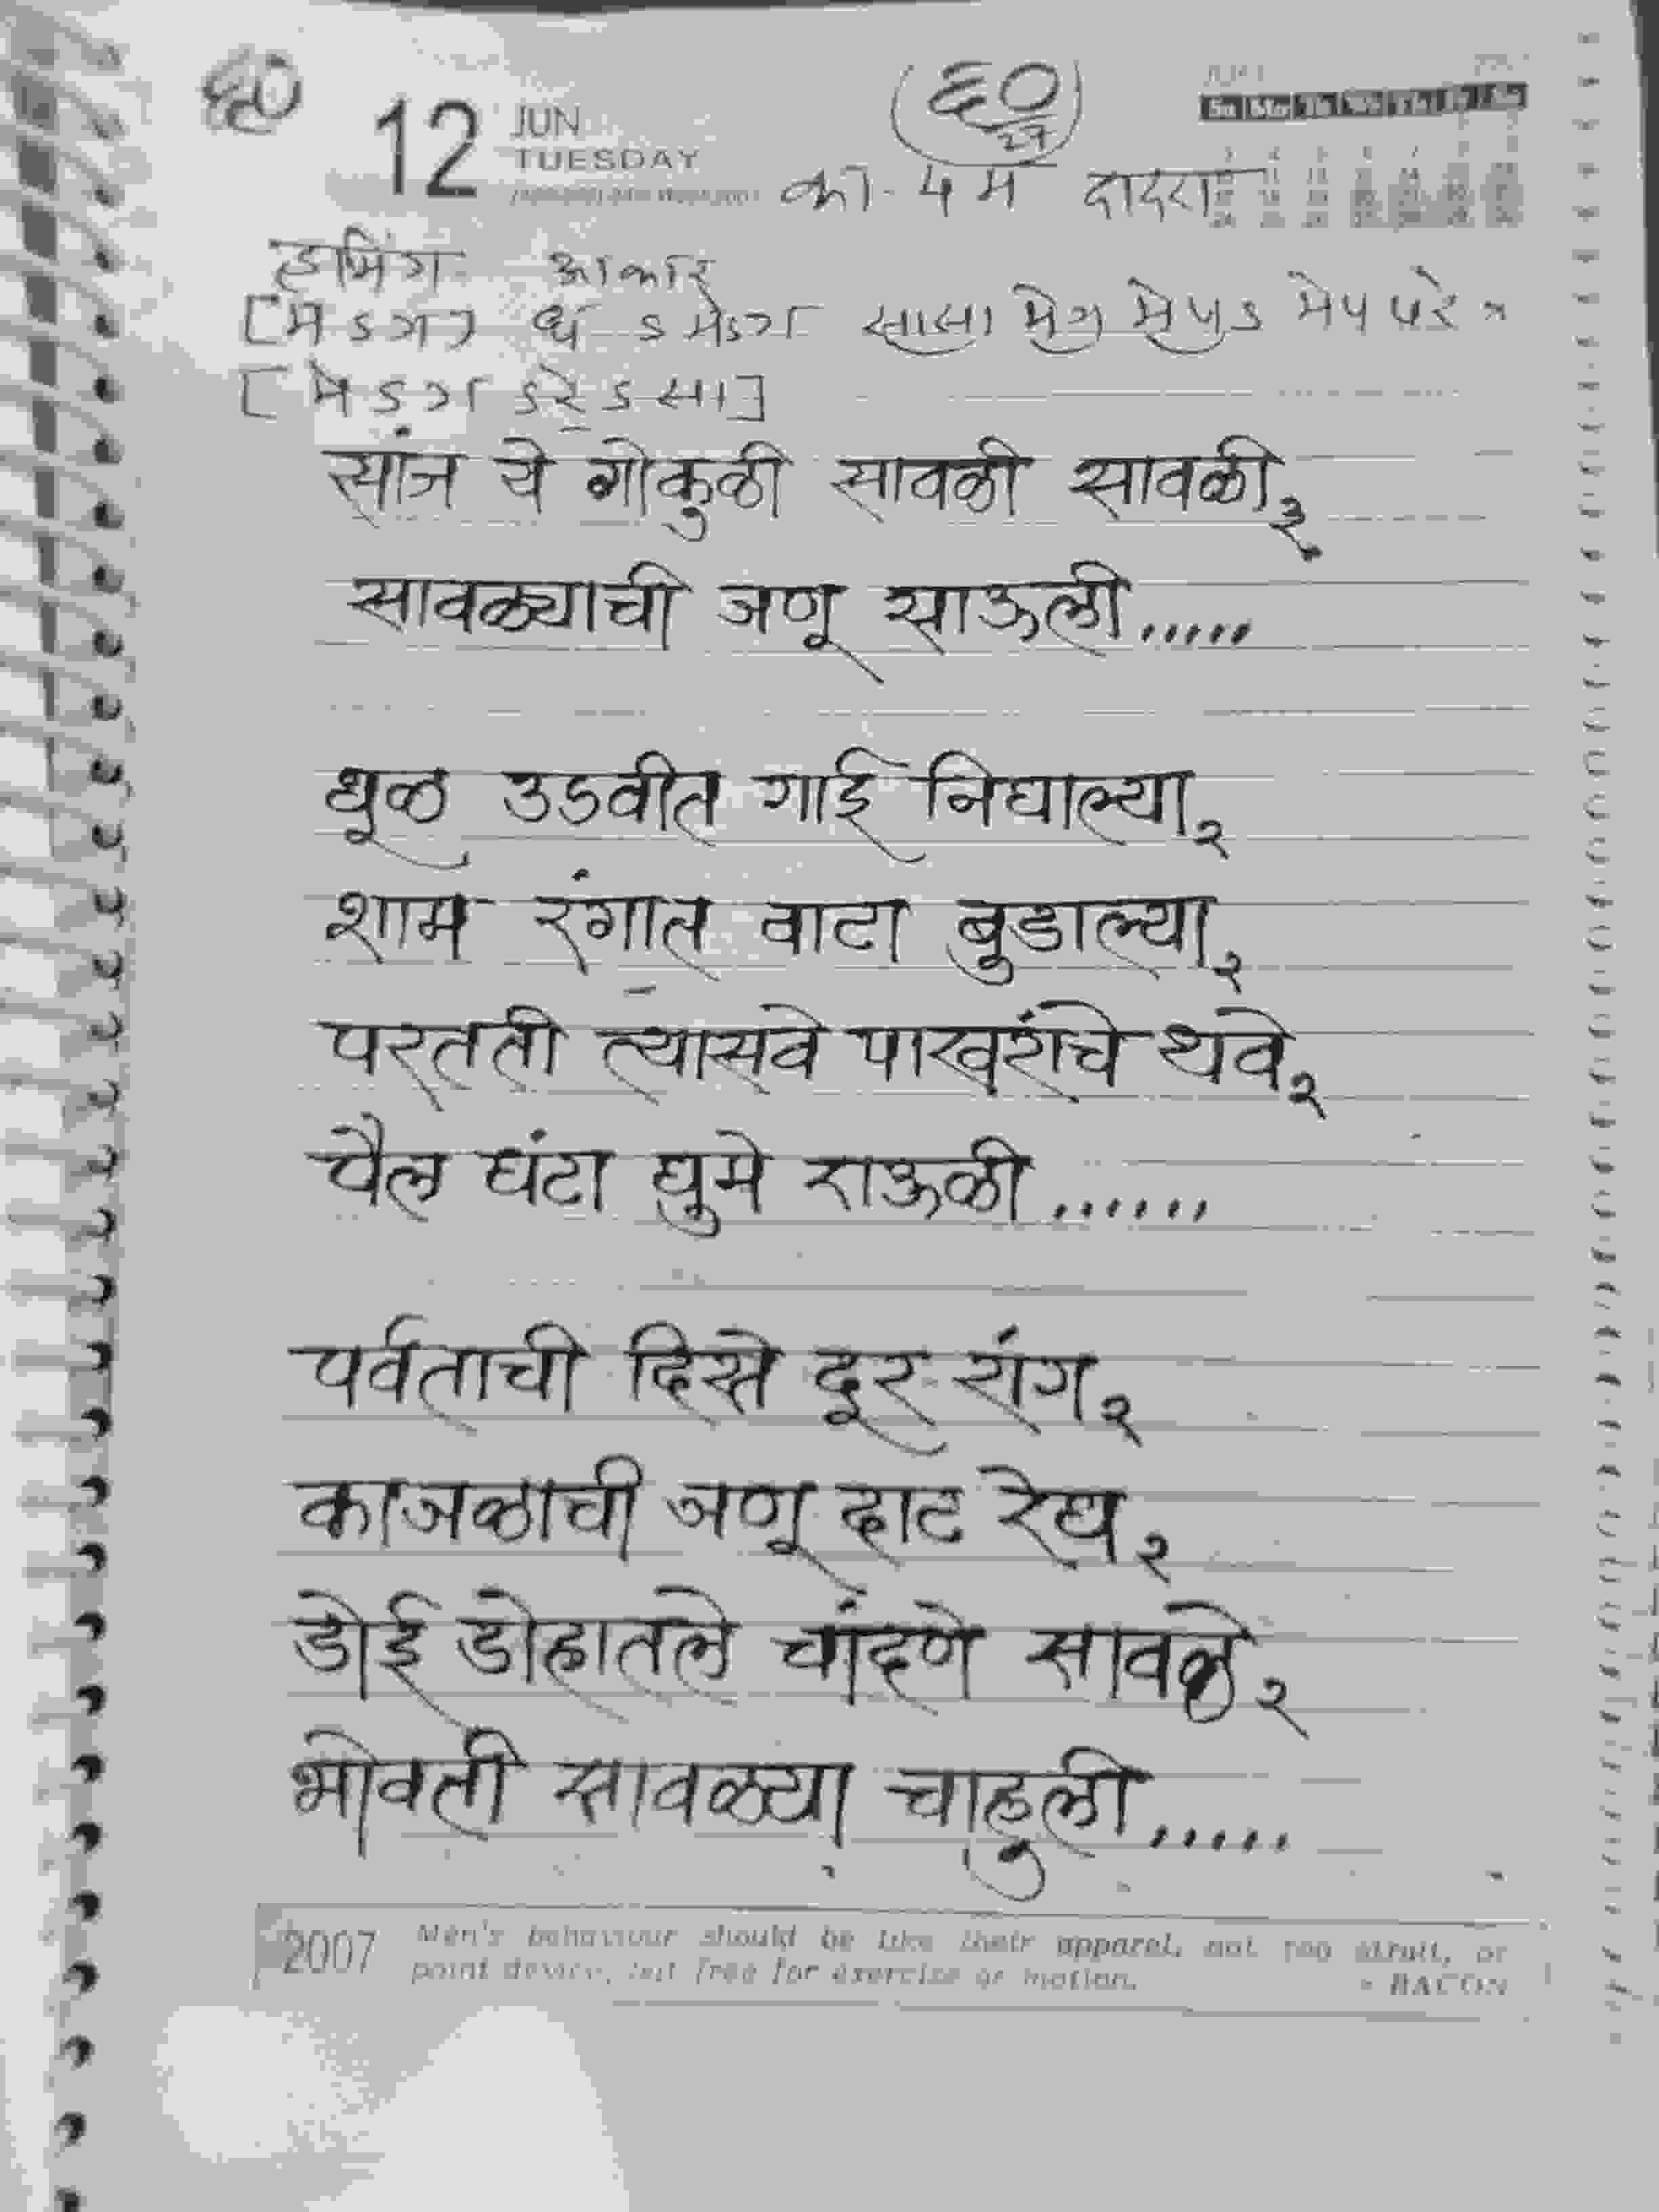 ६०
12 JUN TUESDAY
६०
27
का - ५ म दादरा
Su Mo Tu We Th Fr Sa
हमिंग आकार
[मे ऽ ग] ध ऽ मेऽग सासा मेग मेपऽ मेप परे
[मे ऽ ग ऽ रे ऽ सा]
सांज ये गोकुळी सावळी सावळी३
सावळ्याची जणू साऊली.....
धूळ उडवीत गाई निघाल्या२
शाम रंगात वाटा बुडाल्या२
परतती त्यासवे पाखरांचे थवे२
पैल घंटा घुमे राऊळी......
पर्वताची दिसे दूर रांग२
काजळाची जणू दाट रेघ२
डोई डोहातले चांदणे सावळे२
भोवती सावळ्या चाहुली.....
2007 Men's behaviour should be like their apparel, not too strait, or
point device, but free for exercise or motion. - BACON